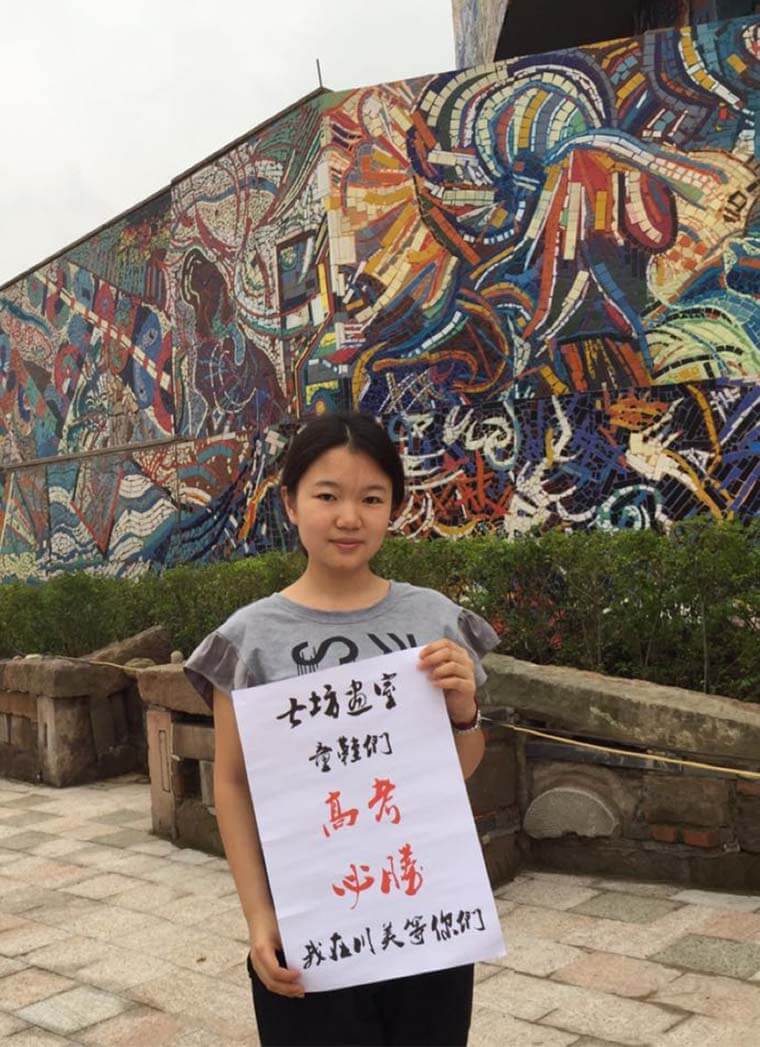 七坊畫室
童鞋們
高考
必勝
我在川美等你們